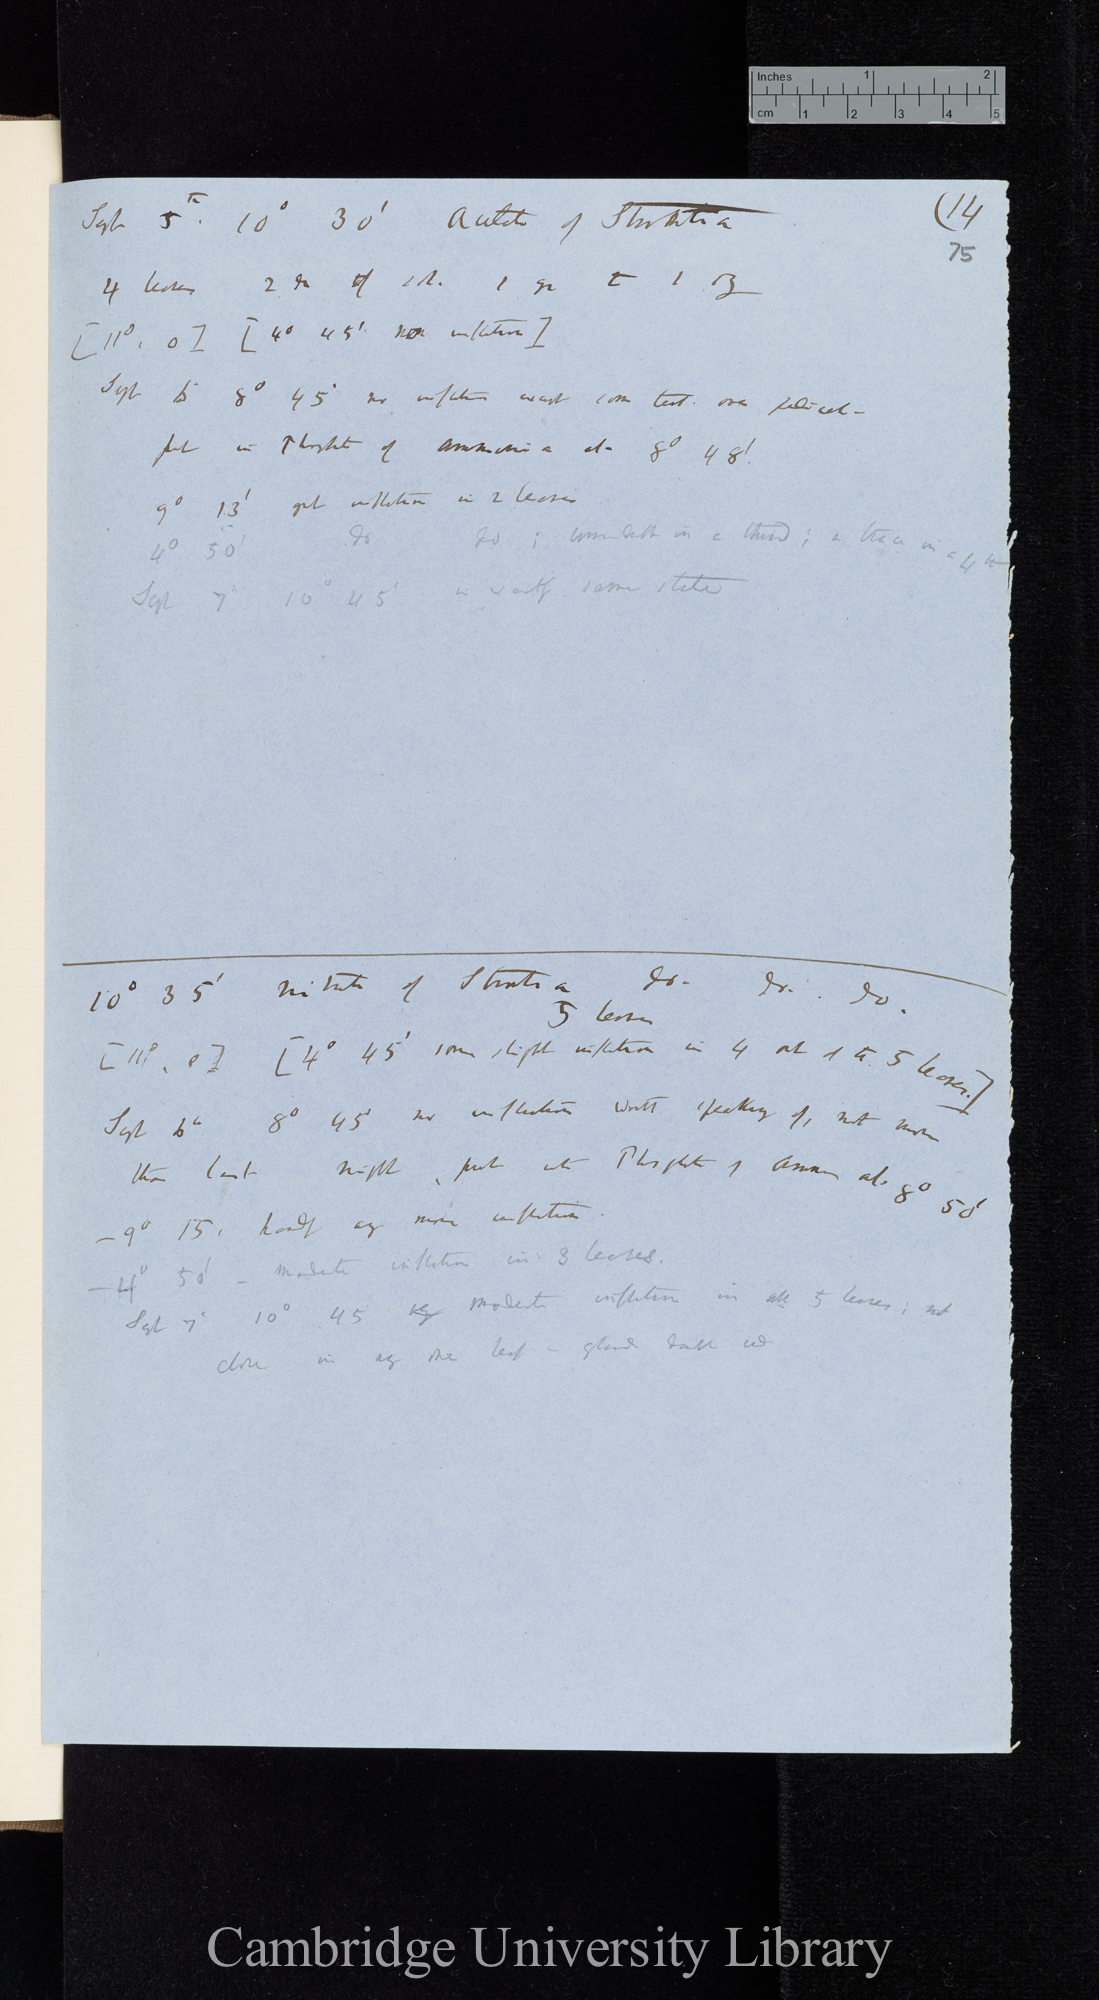 Inches 1 2
cm 1 2 3 4 5
(14
75
Sept 5th. 10° 30' Acetate of Strontia
4 leaves 2 dr of sol. 1 gr to 1 oz
[11°. 0] [4° 45' no inflection]
Sept 6 8° 45' no inflection except some tent. over pedicel-
put in Phosphate of Ammonia at 8° 48'.
9° 13' great inflection in 2 leaves
4° 50' do do ; considerable in a third; a trace in a 4th
Sept 7' 10° 45' in exactly same state
10° 35' Nitrate of Strontia do. do. do.
5 leaves
[11°. 0] [4° 45' some slight inflection in 4 out of the 5 leaves.]
Sept 6th 8° 45' no inflection worth speaking of, not more
than last night, put into Phosphate of Ammon at 8° 50'
—9° 15' hardly any more inflection.
—4° 50' — moderate inflection in 3 leaves.
Sept 7' 10° 45 moderate inflection in all 5 leaves; not
close in any one leaf — glands dark red
Cambridge University Library